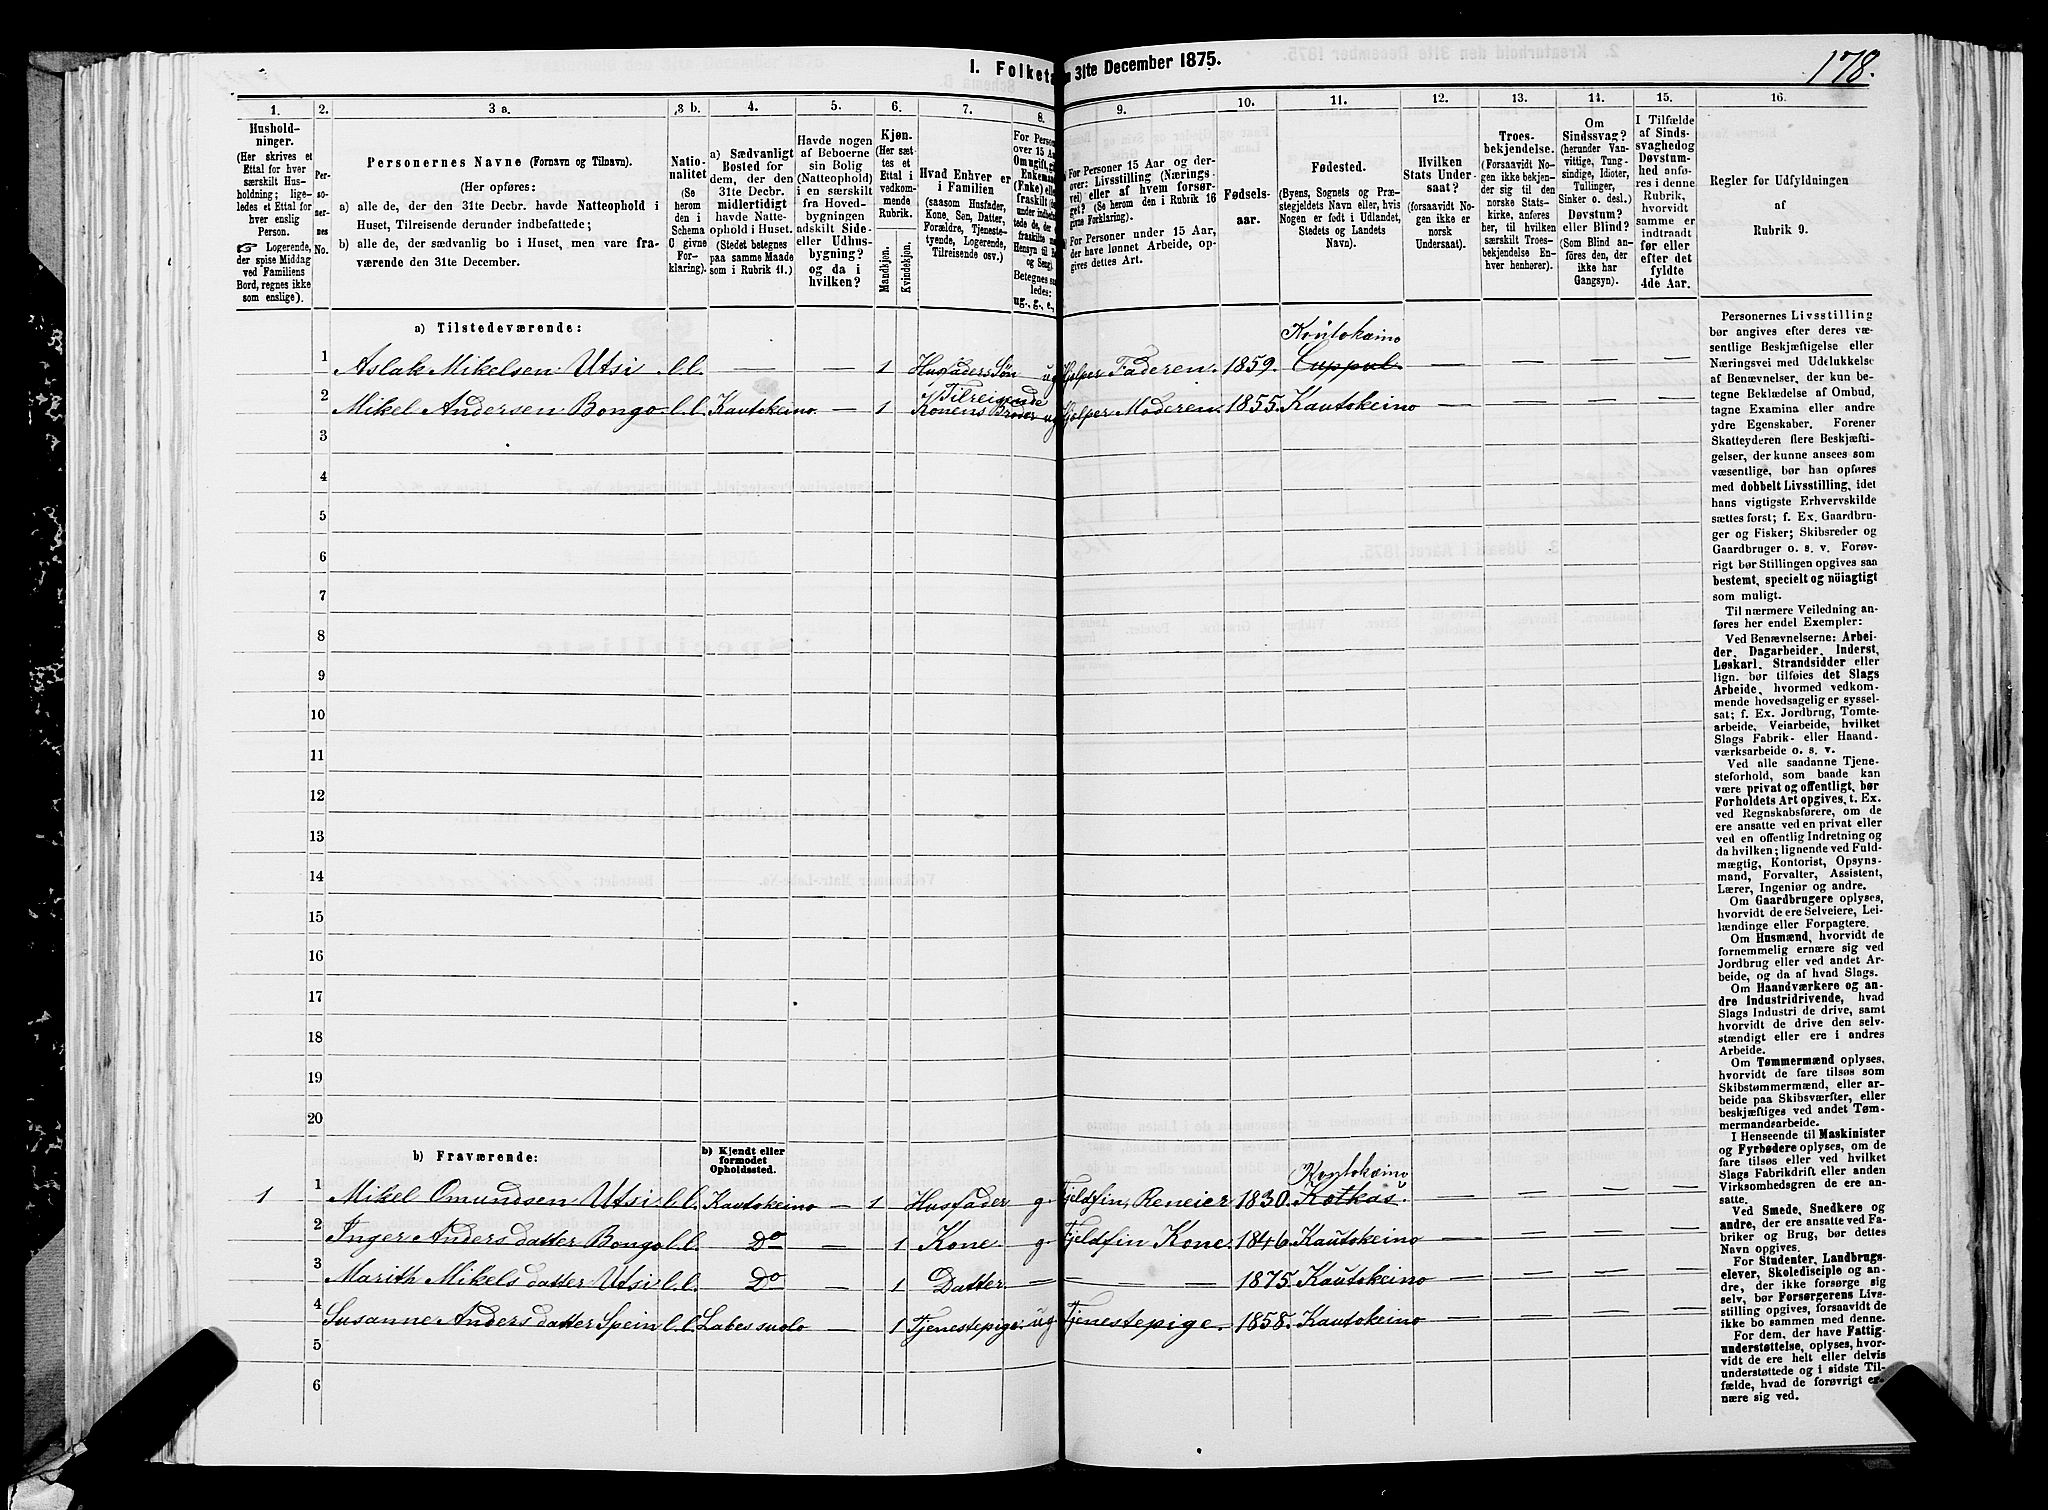 I. Folketæ
n 31te December 1875.
178.
1. 2. 3 a. 3 b. 4. 5. 6. 7. 8. 9. 10. 11. 12. 13. 14. 15. 16.
Hushold-
ninger.
(Her skrives et
Ettal for hver
særskilt Hus-
holdning; lige-
ledes et Ettal for
hver enslig
Person.
☞ Logerende,
der spise Middag
ved Familiens
Bord, regnes ikke
som enslige).
Per-
soner-
nes
No.
Personernes Navne (Fornavn og Tilnavn).
(Her opføres:
a) alle de, der den 31te Decbr. havde Natteophold i
Huset, Tilreisende derunder indbefattede;
b) alle de, der sædvanlig bo i Huset, men vare fra-
værende den 31te December.
Natio-
nalitet
(Se
herom
den i
Schema
C givne
For-
klaring).
a) Sædvanligt
Bosted for
dem, der den
31te Decbr.
midlertidigt
havde Natte-
ophold i Huset.
(Stedet betegnes
paa samme Maade
som i Rubrik 11.)
Havde nogen
af Beboerne
sin Bolig
(Natteophold)
i en særskilt
fra Hoved-
bygningen
adskilt Side-
eller Udhus-
bygning?
og da i
hvilken?
Kjøn.
(Her sæt-
tes et
Ettal i
vedkom-
mende
Rubrik.
Mandkjøn.
Kvindekjøn.
Hvad Enhver er
i Familien
(saasom Husfader,
Kone, Søn, Datter,
Forældre, Tjeneste-
tyende, Logerende,
Tilreisende osv.)
For Person
over 15 Aa
Om ugift, gi
Enkeman
(Enke) elle
fraskilt (he
under indbefa
tede de, der e
fraskilte m
Hensyn til Bo
og Seng).
Betegnes sa
ledes:
ug., g., e.,
For Personer 15 Aar og der-
over: Livsstilling (Nærings-
vei) eller af hvem forsør-
get? (Se herom den i Rubrik 16
givne Forklaring).
For Personer under 15 Aar,
der have lønnet Arbeide, op-
gives dettes Art.
Fødsels-
aar.
Fødested.
(Byens, Sognets og Præ-
stegjeldets Navn eller, hvis
Nogen er født i Udlandet,
Stedets og Landets
Navn).
Hvilken
Stats Under-
saat?
(forsaavidt No-
gen ikke er
norsk
Undersaat).
Troes-
bekjendelse.
(Forsaavidt No-
gen ikke bekjen-
der sig til den
norske Stats-
kirke, anføres
her, til hvilken
særskilt Troes-
bekjendelse En-
hver henhører).
Om
Sindssvag?
(herunder Van-
vittige, Tung-
sindige, Idioter,
Tullinger,
Sinker o. desl.)
Døvstum?
eller Blind?
(Som Blind an-
føres den, der
ikke har
Gangsyn).
I Tilfælde
af Sinds-
svaghed og
Døvstum-
hed anfø-
res i denne
Rubrik,
hvorvidt
samme er
indtraadt
før eller
efter det
fyldte
4de Aar.
Regler for Udfyldningen
af
Rubrik 9.
a) Tilstedeværende:
1 Aslak Mikelsen Utsi l.l. — — 1 Husfaders Søn ug Hjelper Faderen. 1859. Kautokeino Cuppul — — — —
2 Mikel Andersen Bongo l.l. Kautokeino — 1 Tilreisende Konens Broder ug Hjelper Moderen. 1855. Kautokeino — — — —
3
4
5
6
7
8
9
10
11
12
13
14
15
16
17
18
19
20
b) Fraværende:
b) Kjendt eller
formodet
Opholdssted.
1 1 Mikel Omundsen Utsi l.l. Kautokeino — 1 Husfader g Fjeldfin, Reneier 1830. Kautokeino Kotkas — — — —
2 Inger Andersdatter Bongo l.l. Do — 1 Kone g Fjeldfin Kone. 1846. Kautokeino — — — —
3 Marith Mikelsdatter Utsi l.l. Do — 1 Datter — — — 1875. Kautokeino — — — —
4 Susanne Andersdatter Spein l.l. Labessuolo — 1 Tjenestepige. ug Tjenestepige. 1858. Kautokeino — — — —
5
6
Personernes Livsstilling
bør angives efter deres væ-
sentlige Beskjæftigelse eller
Næringsvei med Udelukkelse
af Benævnelser, der kun be-
tegne Beklædelse af Ombud,
tagne Examina eller andre
ydre Egenskaber. Forener
Skatteyderen flere Beskjæfti-
gelser, der kunne ansees som
væsentlige, bør han opføres
med dobbelt Livsstilling, idet
hans vigtigste Erhvervskilde
sættes først; f. Ex. Gaardbru-
ger og Fisker; Skibsreder og
Gaardbruger o. s. v. Forøv-
rigt bør Stillingen opgives saa
bestemt, specielt og nöiagtigt
som muligt.
Til nærmere Veiledning an-
føres her endel Exempler:
Ved Benævnelserne: Arbei-
der, Dagarbeider, Inderst,
Løskarl, Strandsidder eller
lign. bør tilføies det Slags
Arbeide, hvormed vedkom-
mende hovedsagelig er syssel-
sat; f. Ex. Jordbrug, Tomte-
arbeide, Veiarbeide, hvilket
Slags Fabrik- eller Haand-
værksarbeide o. s. v.
Ved alle saadanne Tjene-
steforhold, som baade kan
være privat og offentligt, bør
Forholdets Art opgives, t. Ex.
ved Regnskabsførere, om de
ere ansatte ved en privat eller
ved en offentlig Indretning og
da hvilken; lignende ved Fuld-
mægtig, Kontorist, Opsyns-
mand, Forvalter, Assistent,
Lærer, Ingeniør og andre.
Om Gaardbrugere oplyses,
hvorvidt de ere Selveiere, Lei-
lændinge eller Forpagtere.
Om Husmænd, hvorvidt de
fornemmelig ernære sig ved
Jordbrug eller ved andet Ar-
beide, og da af hvad Slags.
Om Haandværkere og an-
dre Industridrivende, hvad
Slags Industri de drive, samt
hvorvidt de drive den selv-
stændigt eller ere i andres
Arbeide.
Om Tømmermænd oplyses,
hvorvidt de fare tilsøs som
Skibstømmermænd, eller ar-
beide paa Skibsværfter, eller
beskjæftiges ved andet Tøm-
mermandsarbeide.
I Henseende til Maskinister
og Fyrbødere oplyses, om de
fare tilsøs eller ved hvilket
Slags Fabrikdrift eller anden
Virksomhedsgren de ere an-
satte.
Ved Smede, Snedkere og
andre, der ere ansatte ved Fa-
briker og Brug, bør dettes
Navn opgives.
For Studenter, Landbrugs-
elever, Skoledisciple og an-
dre, der ikke forsørge sig
selv, bør Forsørgerens Livs-
stilling opgives, forsaavidt de
ikke bo sammen med denne.
For dem, der have Fattig-
understøttelse, oplyses, hvor-
vidt de ere helt eller delvis
understøttede og i sidste Til-
fælde, hvad de forøvrigt er-
nære sig ved.